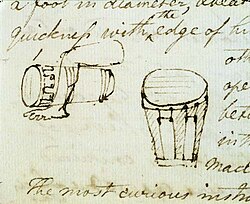 a foot in diameter,
the
quickness with ^ edge of th
oth
ope
be
in
Mac
The most curious inst